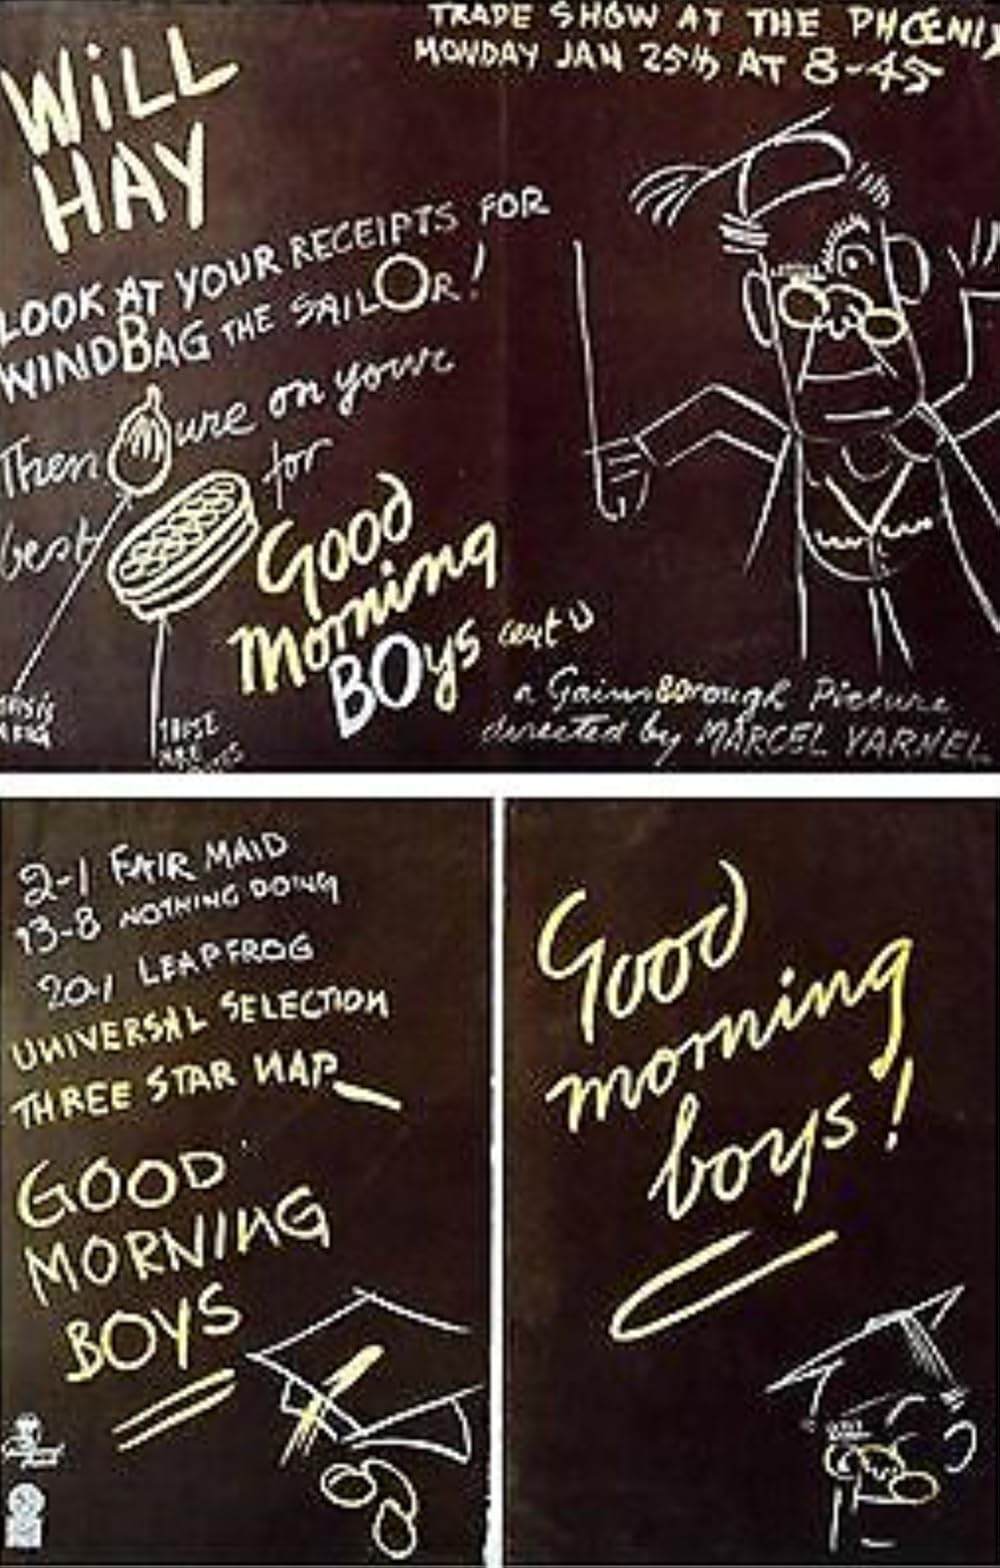 TRADE SHOW AT THE PHOENIX
MONDAY JAN 25th AT 8-45
WiLL
HAY
LOOK AT YOUR RECEIPTS FOR
WINDBAG THE SAILOR!
Then ure on your
best for
Good
Morning
BOys
a Gainsborough Picture
directed by MARCEL VARNEL
THESE
ARE
2-1 FAIR MAID
13-8 NOTHING DOING
20-1 LEAPFROG
UNIVERSAL SELECTION
THREE STAR NAP
GOOD
MORNING
BOYS
Good
morning
boys!